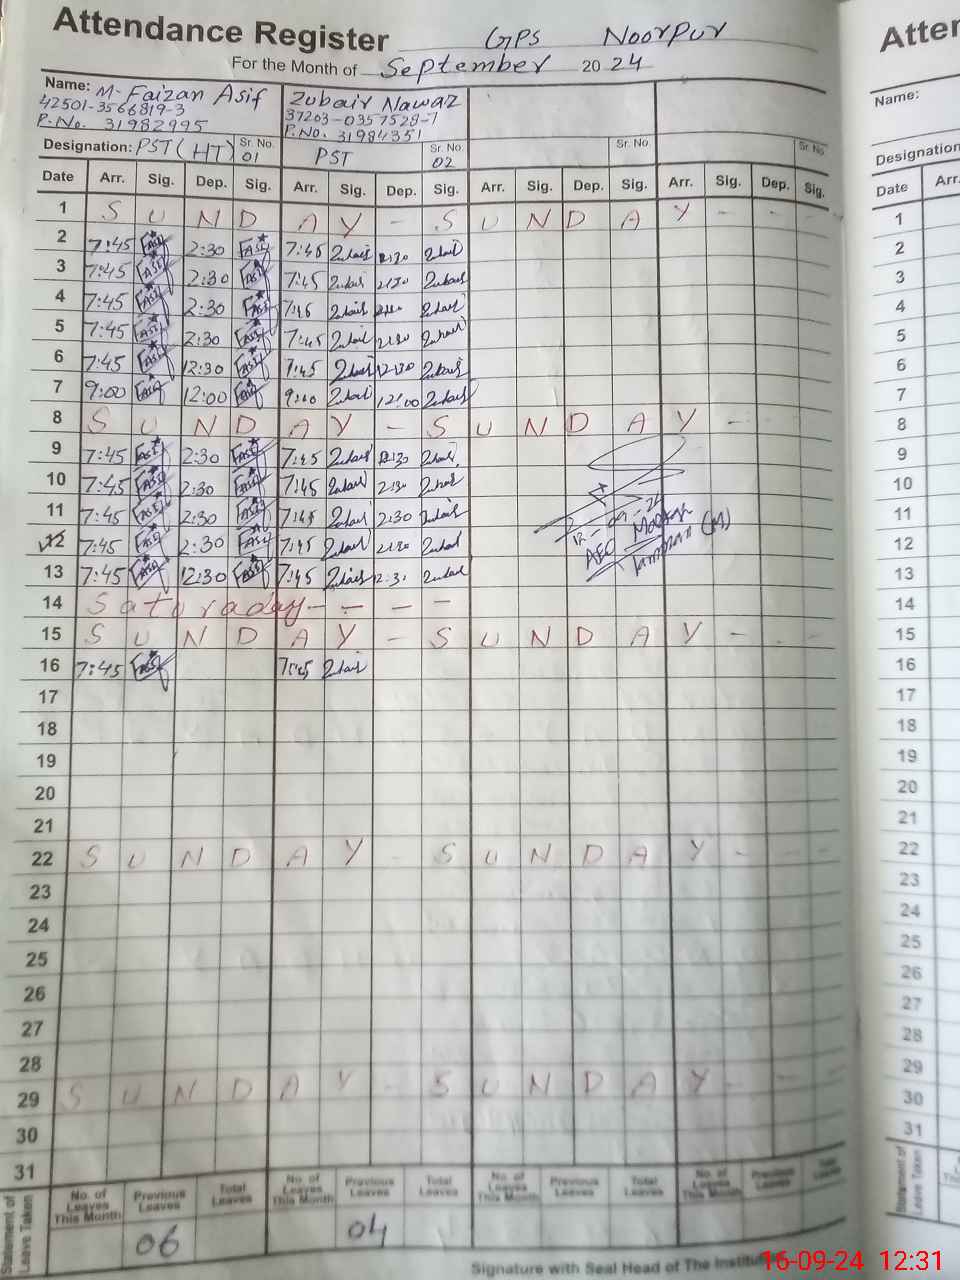 Attendance Register GPS Noorpur
For the Month of September 2024
Name: M. Faizan Asif Zubair Nawaz
42501-3566819-3 37203-0357528-7
P.No. 31982995 P.No. 31984351
Designation: PST (HT) Sr. No. 01 PST Sr. No. 02 Sr. No. Sr. No.
Date Arr. Sig. Dep. Sig. Arr. Sig. Dep. Sig. Arr. Sig. Dep. Sig. Arr. Sig. Dep. Sig.
1 S U N D A Y - S U N D A Y - - -
2 7:45 Asif 2:30 Asif 7:45 Zubair 2:30 Zubair
3 7:45 Asif 2:30 Asif 7:45 Zubair 2:30 Zubair
4 7:45 Asif 2:30 Asif 7:45 Zubair Zubair
5 7:45 Asif 2:30 Asif 7:45 Zubair 2:30 Zubair
6 7:45 Asif 12:30 Asif 7:45 Zubair 12:30 Zubair
7 9:00 Asif 12:00 Asif 9:00 Zubair 12:00 Zubair
8 S U N D A Y - S U N D A Y - - -
9 7:45 Asif 2:30 Asif 7:45 Zubair 2:30 Zubair
10 7:45 Asif 2:30 Asif 7:45 Zubair 2:30 Zubair
11 7:45 Asif 2:30 Asif 7:45 Zubair 2:30 Zubair
12-09-24
12 7:45 Asif 2:30 Asif 7:45 Zubair 2:30 Zubair
AEO (M)
13 7:45 Asif 12:30 Asif 7:45 Zubair 12:30 Zubair
14 Satuраday - - - -
15 S U N D A Y - S U N D A Y - - -
16 7:45 Asif 7:45 Zubair
17
18
19
20
21
22 S U N D A Y - S U N D A Y - - -
23
24
25
26
27
28
29 S U N D A Y - S U N D A Y - - -
30
31
Statement of Leave Taken
No. of Leaves This Month Previous Leaves Total Leaves No. of Leaves This Month Previous Leaves Total Leaves No. of Leaves This Month Previous Leaves Total Leaves No. of Leaves This Month Previous Leaves Total Leaves
06 04
Signature with Seal Head of The Institu
16-09-24 12:31
Atter
Name:
Designation
Date Arr.
1
2
3
4
5
6
7
8
9
10
11
12
13
14
15
16
17
18
19
20
21
22
23
24
25
26
27
28
29
30
31
Statement of Leave Taken